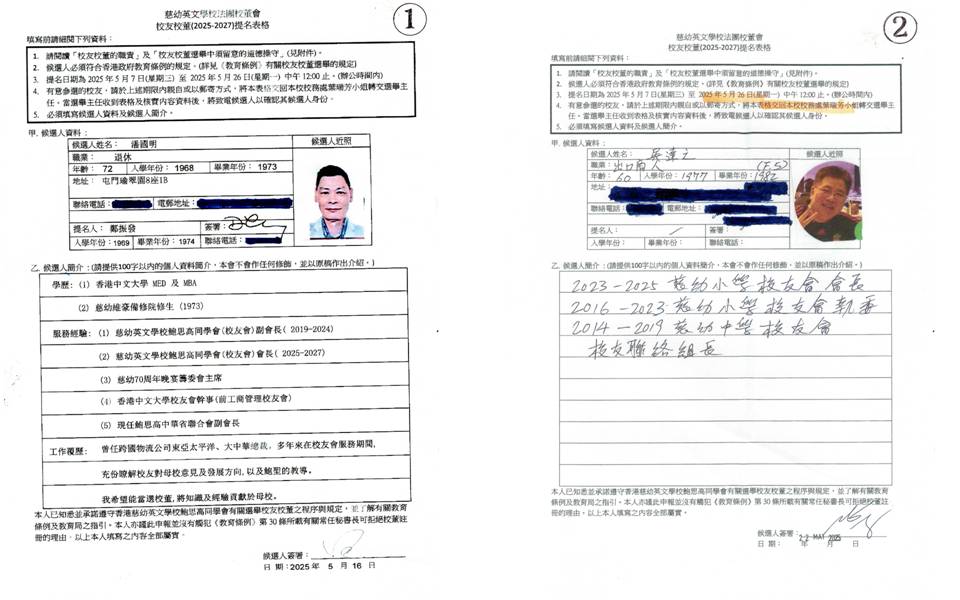 慈幼英文學校法團校董會
校友校董(2025-2027)提名表格
1
填寫前請細閱下列資料：
1. 請閱讀「校友校董的職責」及「校友校董選舉中須留意的道德操守」(見附件)。
2. 候選人必須符合香港政府教育條例的規定。(詳見《教育條例》有關校友校董選舉的規定)
3. 提名日期為 2025 年 5 月 7 日(星期三) 至 2025 年 5 月 26 日(星期一) 中午 12:00 止。(辦公時間內)
4. 有意參選的校友，請於上述期限內親自或以郵寄方式，將本表格交回本校校務處葉瑞芳小姐轉交選舉主
任。當選舉主任收到表格及核實內容資料後，將致電候選人以確認其候選人身份。
5. 必須填寫候選人資料及候選人簡介。
甲. 候選人資料：
候選人姓名： 潘國明
候選人近照
職業： 退休
年齡： 72 入學年份： 1968 畢業年份： 1973
地址： 屯門瑜翠園8座1B
聯絡電話： 電郵地址：
提名人： 鄭振發 簽署：
入學年份：1969 畢業年份： 1974 聯絡電話：
乙. 候選人簡介：(請提供100字以內的個人資料簡介，本會不會作任何修飾，並以原稿作出介紹。)
學歷： (1) 香港中文大學 MED 及 MBA
(2) 慈幼維豪備修院修生 (1973)
服務經驗： (1) 慈幼英文學校鮑思高同學會(校友會)副會長( 2019-2024)
(2) 慈幼英文學校鮑思高同學會(校友會)會長( 2025-2027)
(3) 慈幼70周年晚宴籌委會主席
(4) 香港中文大學校友會幹事(前工商管理校友會)
(5) 現任鮑思高中華省聯合會副會長
工作履歷： 曾任跨國物流公司東亞太平洋、大中華總裁，多年來在校友會服務期間，
充份瞭解校友對母校意見及發展方向，以及鮑聖的教導。
我希望能當選校董，將知識及經驗貢獻於母校。
本人已知悉並承諾遵守香港慈幼英文學校鮑思高同學會有關選舉校友校董之程序與規定，並了解有關教育
條例及教育局之指引。本人亦謹此申報並沒有觸犯《教育條例》第 30 條所載有關常任秘書長可拒絕校董註
冊的理由。以上本人填寫之內容全部屬實。
候選人簽署：
日 期：2025 年 5 月 16 日
慈幼英文學校法團校董會
校友校董(2025-2027)提名表格
2
填寫前請細閱下列資料：
1. 請閱讀「校友校董的職責」及「校友校董選舉中須留意的道德操守」(見附件)。
2. 候選人必須符合香港政府教育條例的規定。(詳見《教育條例》有關校友校董選舉的規定)
3. 提名日期為 2025 年 5 月 7 日(星期三) 至 2025 年 5 月 26 日(星期一) 中午 12:00 止。(辦公時間內)
4. 有意參選的校友，請於上述期限內親自或以郵寄方式，將本表格交回本校校務處葉瑞芳小姐轉交選舉主
任。當選舉主任收到表格及核實內容資料後，將致電候選人以確認其候選人身份。
5. 必須填寫候選人資料及候選人簡介。
甲. 候選人資料：
候選人姓名：
候選人近照
職業： 出口商人 (F.5)
年齡： 60 入學年份： 1977 畢業年份： 1982
地址：
聯絡電話： 電郵地址：
提名人： 簽署：
入學年份： 畢業年份： 聯絡電話：
乙. 候選人簡介：(請提供100字以內的個人資料簡介，本會不會作任何修飾，並以原稿作出介紹。)
2023-2025 慈幼小學校友會會長
2016-2023 慈幼小學校友會執委
2014-2019 慈幼中學校友會
校友聯絡組長
本人已知悉並承諾遵守香港慈幼英文學校鮑思高同學會有關選舉校友校董之程序與規定，並了解有關教育
條例及教育局之指引。本人亦謹此申報並沒有觸犯《教育條例》第 30 條所載有關常任秘書長可拒絕校董註冊
的理由。以上本人填寫之內容全部屬實。
候選人簽署：
22 MAY 2025
日 期： 年 月 日